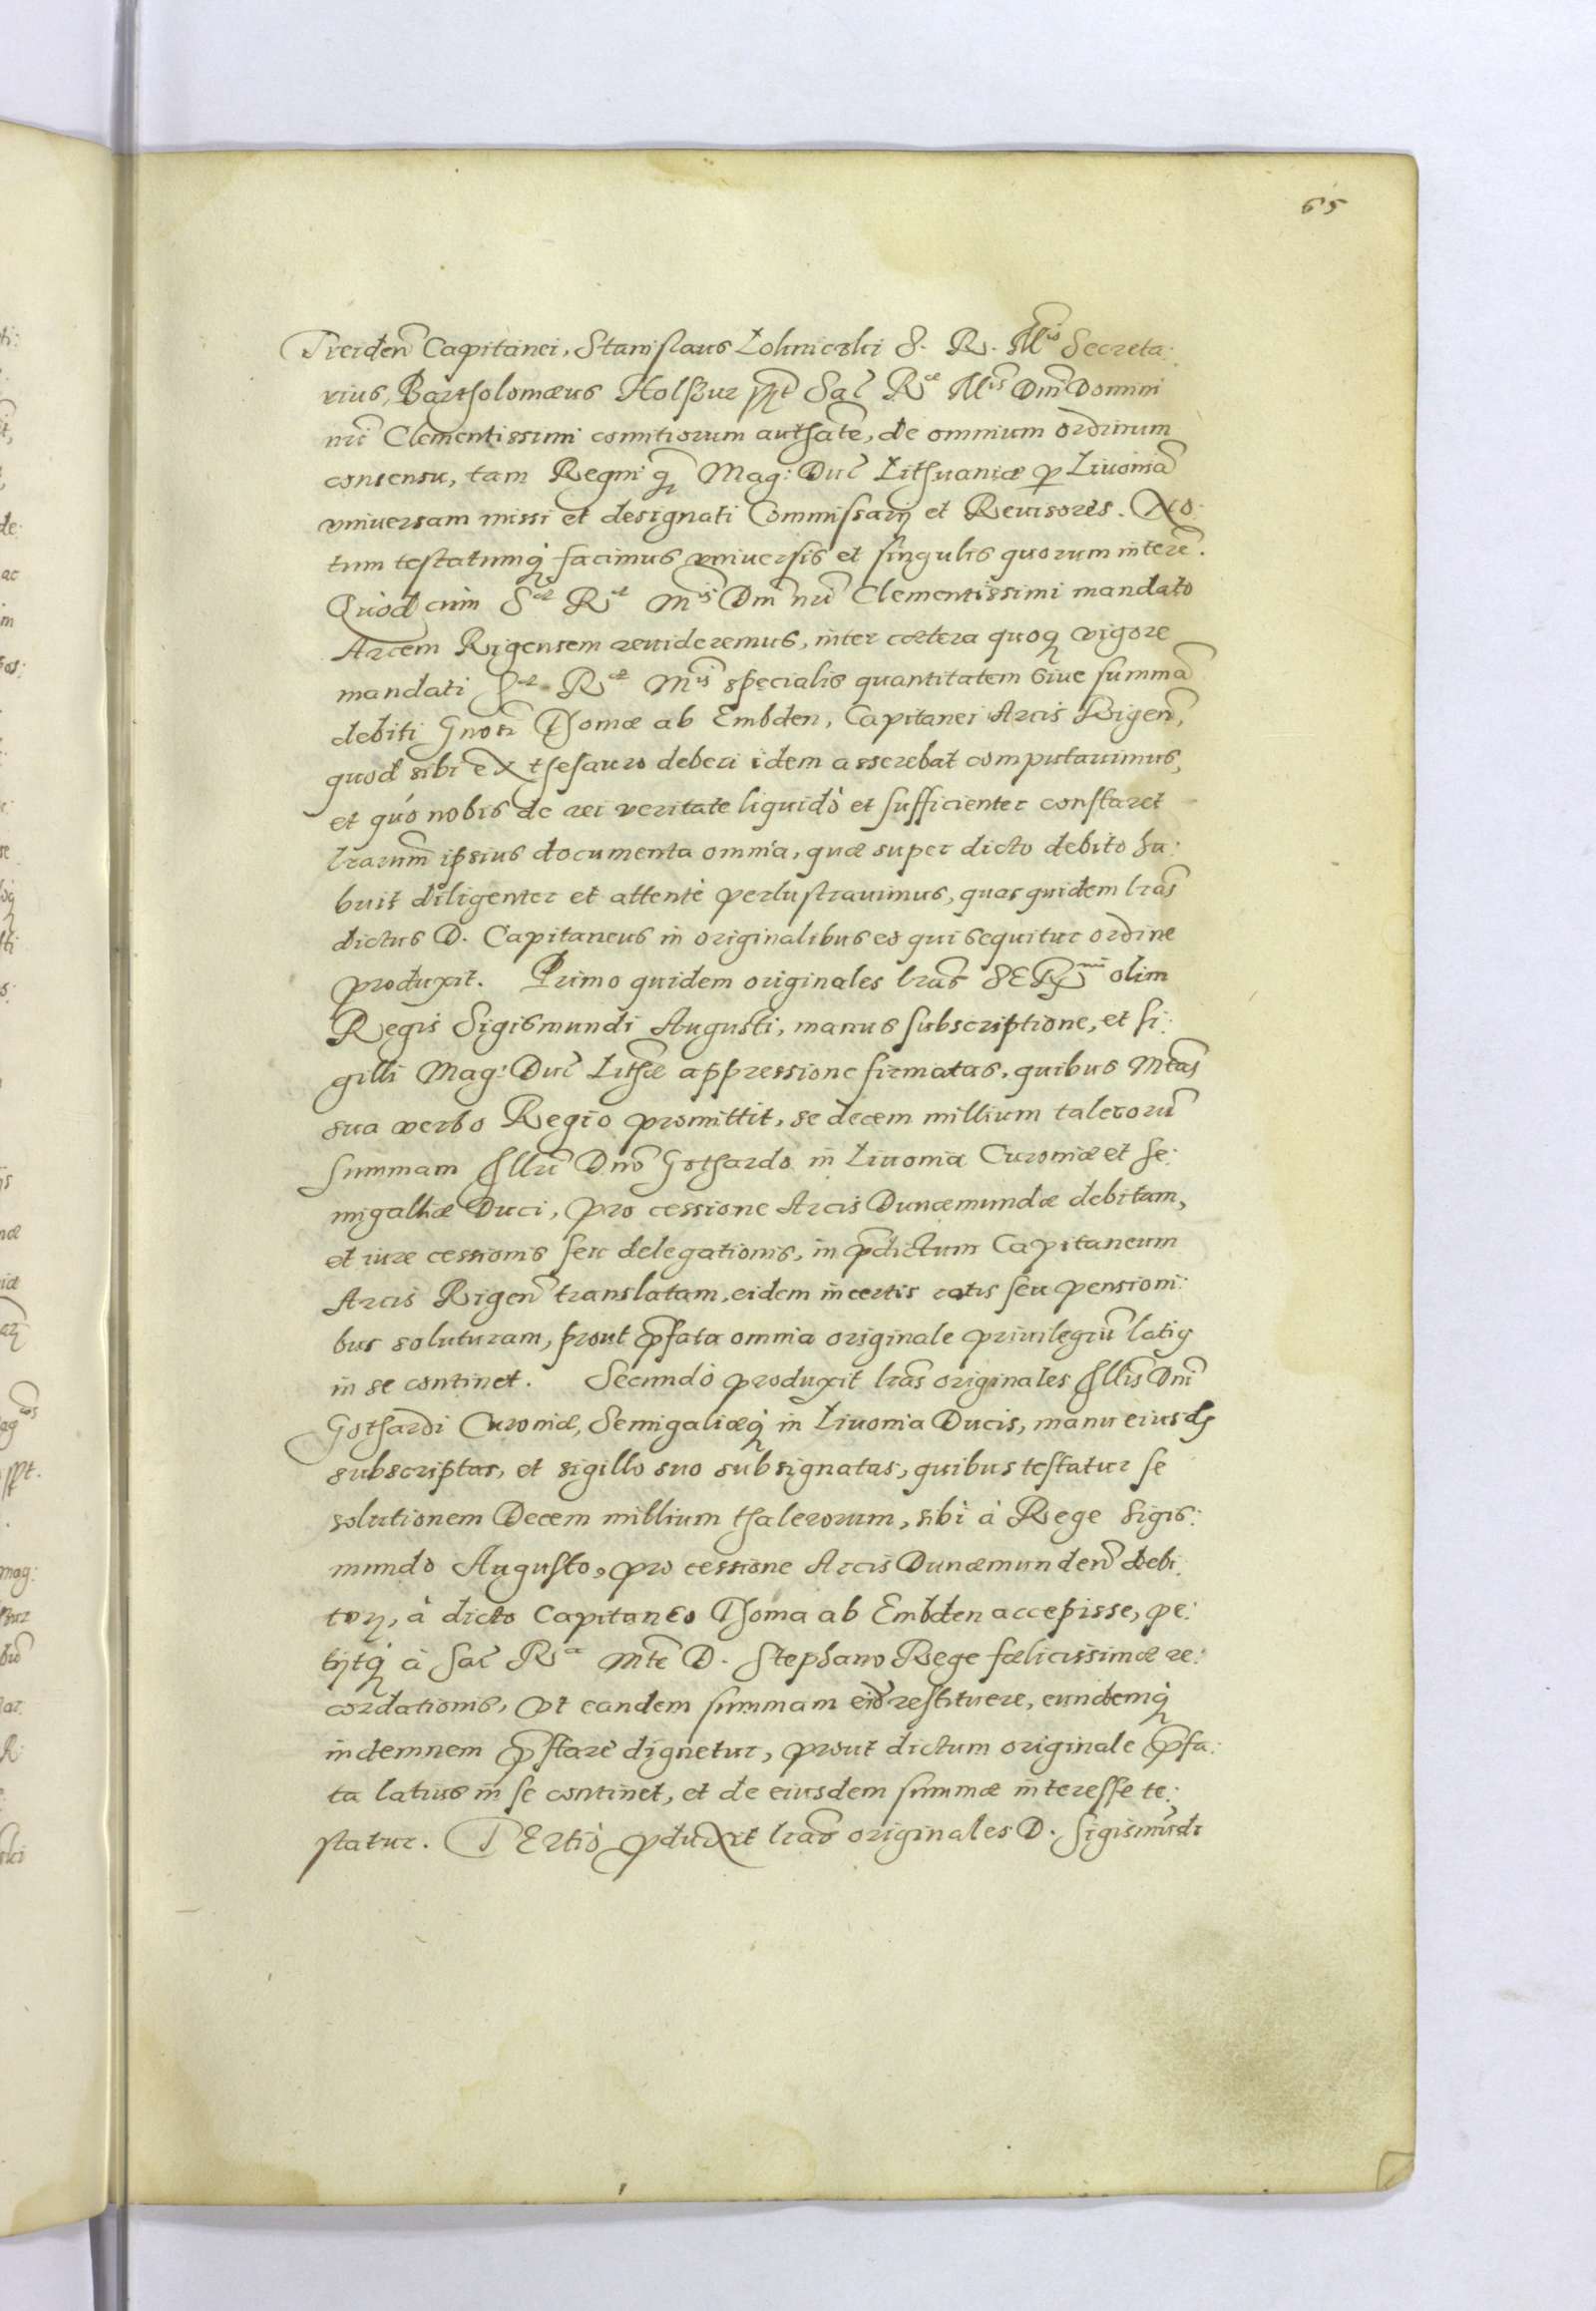 65
Treiden̄ Capitanei, Stanislaus Lohnicski S. R. M̄is Secreta:
rius, Bartholomæus Holszur Sac̄ Ræ M̄is Dm̄ Domini
nr̄i Clementissimi comitiorum authāte, de omnium ordinum
consensu, tam Regni q̄ Mag: Duc̄ Lithuaniæ ꝑ Liuoniā
vniuersam missi et designati Commissarij et Reuisores. No:
tum testatumq́ꝫ facimus vniuersis et singulis quorum interē.
Quod cum Sæ Ræ M̄is Dm̄ nr̄i Clementissimi mandato
Arcem Rigensem reuideremus, inter cætera quoqꝫ vigore
mandati Sæ Ræ M̄is specialis quantitatem siue summā
debiti Gnosi Thomæ ab Embden, Capitanei Arcis Rigen̄,
quod sibi ex thesauro deberi idem asserebat computauimus,
et quó nobis de rei veritate liquidò et sufficienter constaret
lrarum̄ ipsius documenta omnia, quæ super dicto debito ha:
buit diligenter et attentè perlustrauimus, quas quidem lrās
dictus D. Capitaneus in originalibus eo qui sequitur ordine
produxit. Primo quidem originales lrās olim
Regis Sigismundi Augusti, manus subscriptione, et si:
gilli Mag: Duc̄ Lithǣ appressione firmatas, quibus Mtās
sua verbo Regio promittit, se decem millium talerorū
summam Illrī Dno̅ Gothardo in Liuonia Curoniæ et Se:
migalliæ Duci, pro cessione Arcis Dunæmundæ debitam,
et iure cessionis seu delegationis, in p̄dictum Capitaneum
Arcis Rigen̄ translatam, eidem in certis ratis seu pensioni:
bus soluturam, prout p̄fata omnia originale priuilegiū latiꝰ
in se continet. Secundò produxit lrās originales Illris̄ Dnī
Gothardi Curoniæ, Semigaliæq́ꝫ in Liuonia Ducis, manu eiusd̄
subscriptas, et sigillo suo subsignatas, quibus testatur se
solutionem Decem millium thalerorum, sibi à Rege Sigis:
mundo Augusto, pro cessione Arcis Dunæmunden̄ debi:
torꝫ, à dicto Capitaneo Thoma ab Embden accepisse, pe:
tijtq́ꝫ à Sac̄ Ra Mtē D. Stephano Rege fælicissimæ re:
cordationis, vt eandem summam eid̄ restituere, eundemq́ꝫ
indemnem p̄stare dignetur, prout dictum originale p̄fa:
ta latius in se continet, et de eiusdem summæ interesse te:
statur. TErtiò ꝓduxit lrās originales D. Sigismūdi